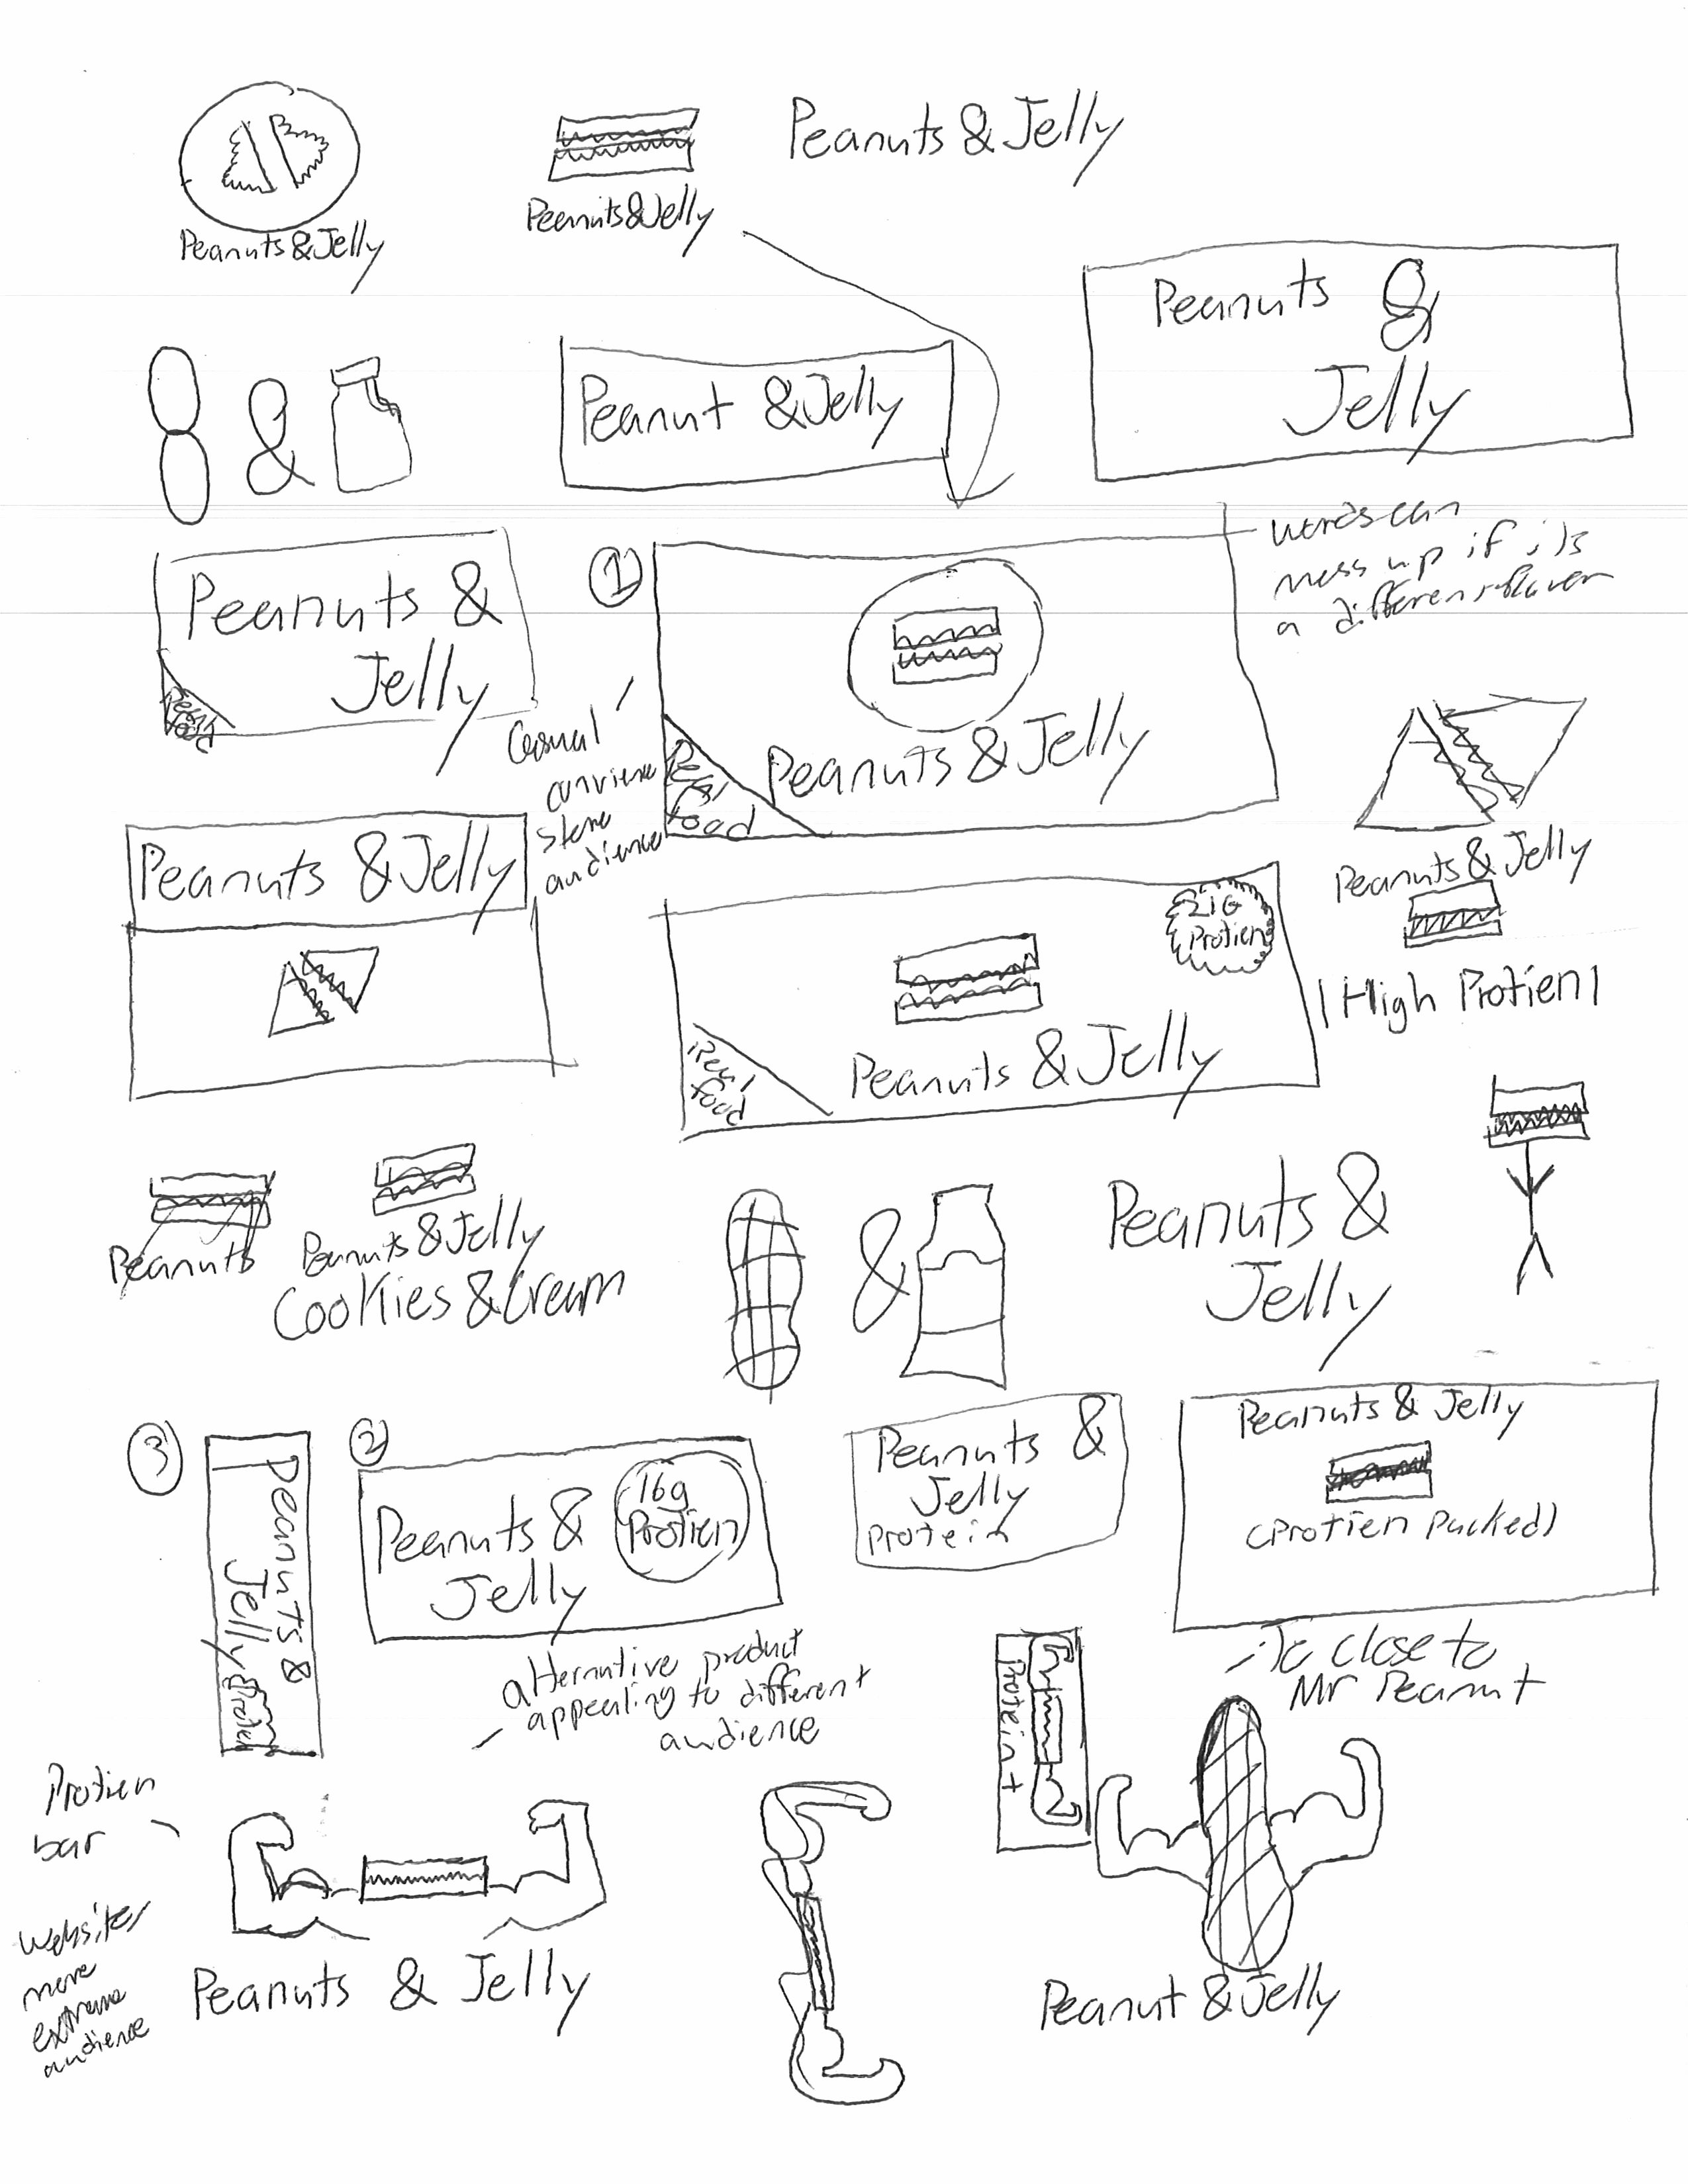 Peanuts & Jelly
Peanuts & Jelly
Peanuts & Jelly
Peanuts &
Jelly
&
Peanut & Jelly
Peanuts &
Jelly
Real
food
①
words can
mess up if its
a different flavor
Peanuts & Jelly
Real
food
Casual
convience
store
audience
Peanuts & Jelly
Peanuts & Jelly
|High Protien|
21G
Protien
Peanuts & Jelly
Real
food
Peanuts
Peanuts & Jelly
Cookies & Cream
&
Peanuts &
Jelly
③
Peanuts &
Jelly
Protein
②
Peanuts &
Jelly
16g
Protien
alternative product
appealing to different
audience
Peanuts &
Jelly
Protein
Peanuts & Jelly
(Protien Packed)
To close to
Mr Peanut
Protein+
Protien
bar
website/
more
extreme
audience
Peanuts & Jelly
Peanut & Jelly